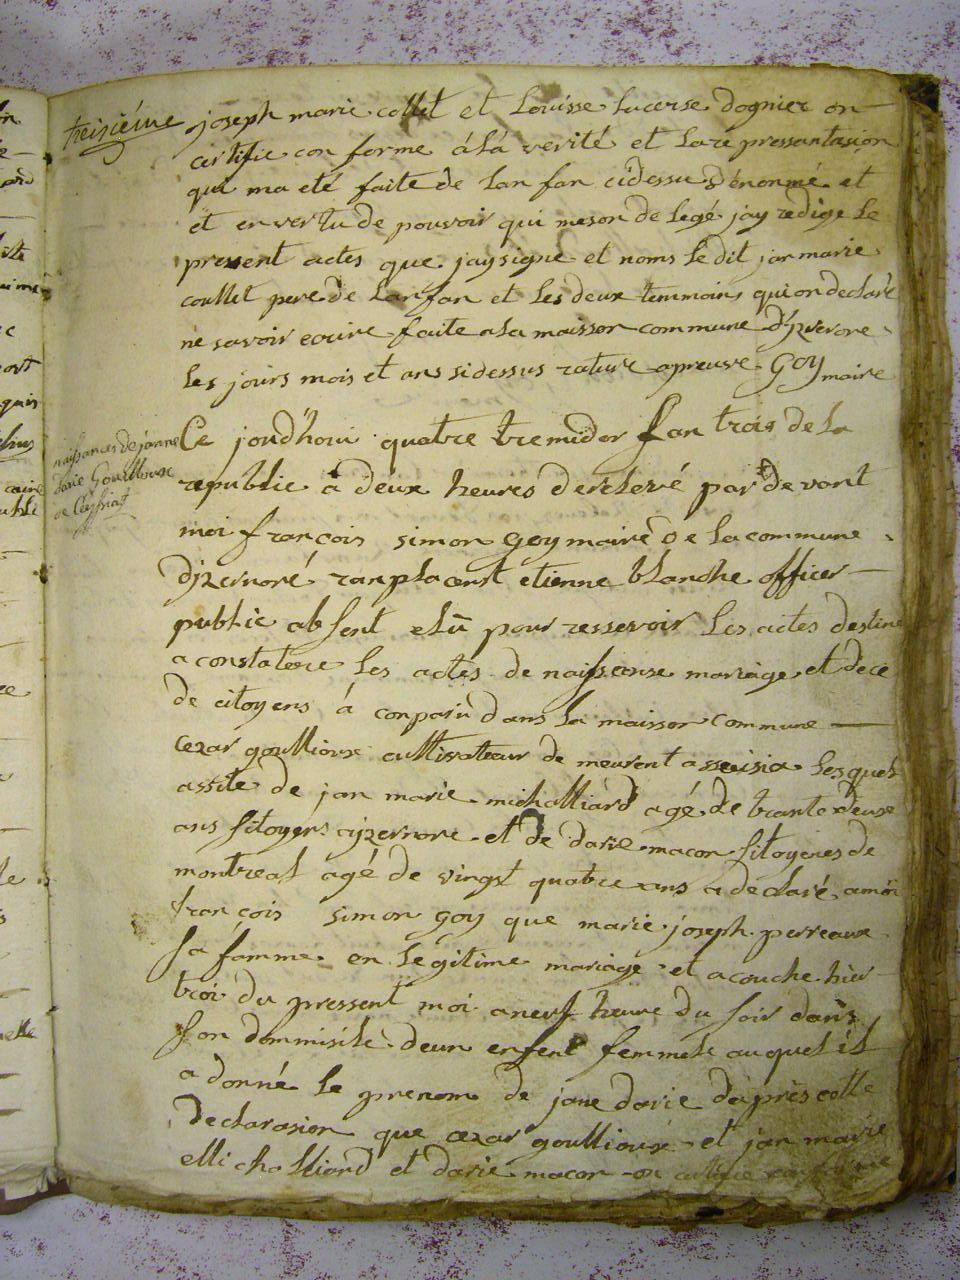 treisiéme
joseph marie collet et Louisse lucerse dognier on
certifie con forme á lá verité et la re pressantasion
qui ma eté faite de lan fan cidessu dénomé et
et en vertu de pouvoir qui meson de legé jay redige le
pressent actes que jaysigne et noms le dit jan marie
coullet pere de lanfan et les deux temmoins qui on declaré
ne savoir ecrire faite a la maisson commune d'jzernore
les jours mois et ans sidessus rature apreuve Goy maire
naissances de janne
darie Gouilloux
de Ceyssiat
Ce joudhoui quatre tremidor lan trois de la
republic à deux heures derelevé par de vant
moi françois simon goy maire de la commune
djzernoré ranplacent etienne blanche officer
public absent elu pour ressevoir les actes destine
a constatere les actes de naissanse mariage et dece
de citoyens á conparu dans la maisson commune
cezar goullioux cultivateur de meurent a sseisia lesquel
assite de jan marie michalliard agé de trante deuse
ans sitoyens ajzernore et de darie macon sitoyenes de
montreal agé de vingt quatre ans a declaré a moi
françois simon goy que marie joseph perreaux
sa famme en legitime mariage et acouche hier
troi du pressent moi a neuf heure du soir dans
son dommisile deun enfent femmele auquel il
a donné le prenom de jane darie daprès cette
declarasion que cezar goullioux et jan marie
michalliard et darie macon on certifie con forme